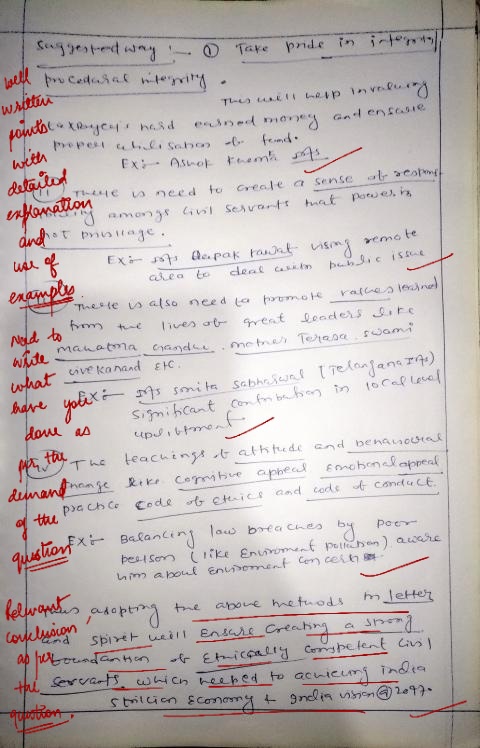 Suggested way :- ① Take pride in integrity
procedural integrity.
This will help in valuing
taxpayer's hard earned money and ensure
proper utilisation of fund.
Ex:- Ashok Khemka IAS
There is need to create a sense of responsi
bility amongs civil servants that power is
not privilage.
Ex:- IAS Deepak rawat vising remote
area to deal with public issue
There is also need to promote values learned
from the lives of great leaders like
Mahatma Gandhi, mother Terasa, swami
vivekanand etc.
Ex:- IAS smita sabharwal (Telangana IAS)
significant contribution in local level
upliftment
iv The teachings of attitude and behavioural
change like cognitive appeal emotional appeal
practice code of ethics and code of conduct
Ex:- Balancing law breaches by poor
person (like Enviroment pollution) aware
him about Enviroment concern
Thus adopting the above methods in letter
and spirit will ensure creating a strong
foundation of Ethically competent civil
servants. which needed to achieving india
5 trillion Economy + India vision @2047.
well
written
points
with
detailed
explanation
and
use of
examples
Need to
write
what
have you
done as
per the
demand
of the
question
Relevant
conclusion,
as per
the
question.